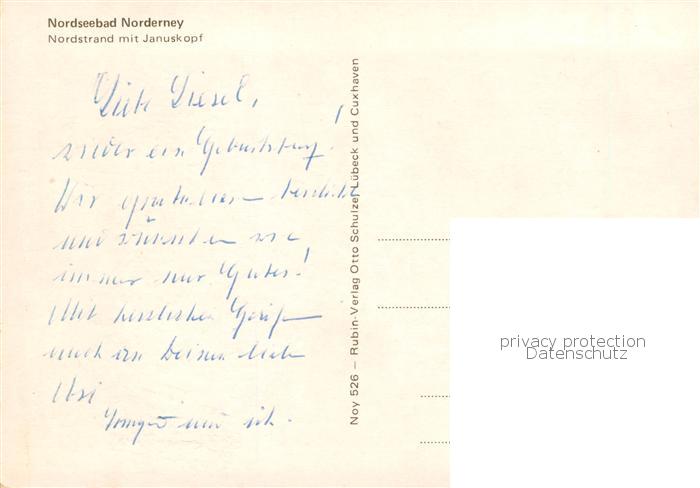 Nordseebad Norderney
Nordstrand mit Januskopf
Liebe Liesel,
wieder ein Geburtstag!
Wir gratulieren herzlich
und wünschen wie
immer nur Gutes!
Mit herzlichen Grüßen
auch an Deinen lieben
und ich.
Noy 526 — Rubin-Verlag Otto Schulze, Lübeck und Cuxhaven
privacy protection
Datenschutz